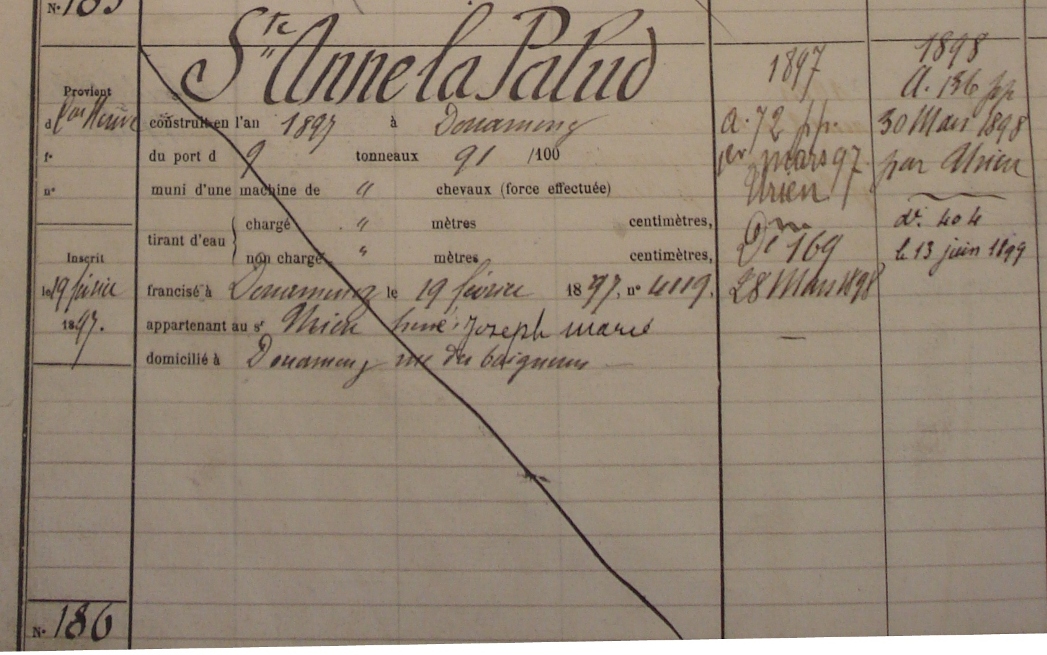 N° 185
Ste Anne la Palud
Provient
d
construit en l'an 1897 à Douarnenez
f° du port d 9 tonneaux 91 /100
n° muni d'une machine de " chevaux (force effectuée)
tirant d'eau { chargé " mètres centimètres,
non chargé " mètres centimètres,
Inscrit
le 19 février
1897.
francisé à Douarnenez le 19 février 1897, n° 4119.
appartenant au sr Urien Joseph marie
domicilié à Douarnenez rue du
1897
a. 72 pp.
1er mars 97
Urien
De 169
28 Mars 1898
—
1898
A. 136 pp
30 Mars 1898
par Urien
d. 404
le 13 juin 1899
N° 186